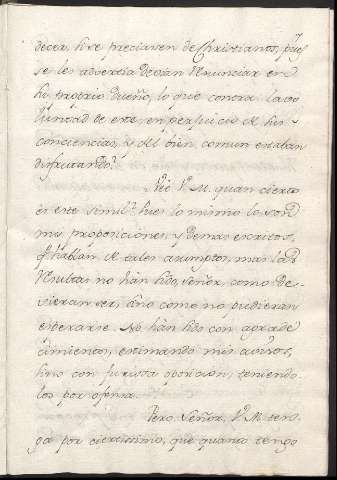 decer, si se preciaven de Christianos, pues
se les advertia devian renunciar en
su proprio dueño, lo que contra la vo
luntad de este, en perjuicio de sus
conciencias, y del bien comun estaban
disfrutando.
Vée V. M. quan cierto
es este simil, pues lo mismo son
mis proposiciones, y demas escritos,
q hablan de tales asumptos, mas las
resultas no han sido, Señor, como de-
vieran ser, sino como no pudieran
esperarse. No han sido con agrade
cimiento, estimando mis avisos,
sino con furiosa oposicion, teniendo
los por ofensa.
Pero, Señor, V. M. ten-
ga por ciertissimo, que quanto tengo